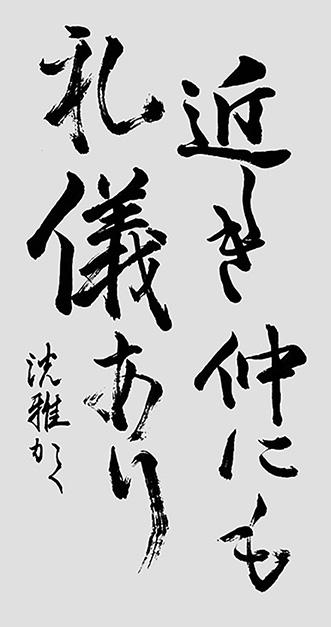 近しき仲にも
礼儀あり
雅かく